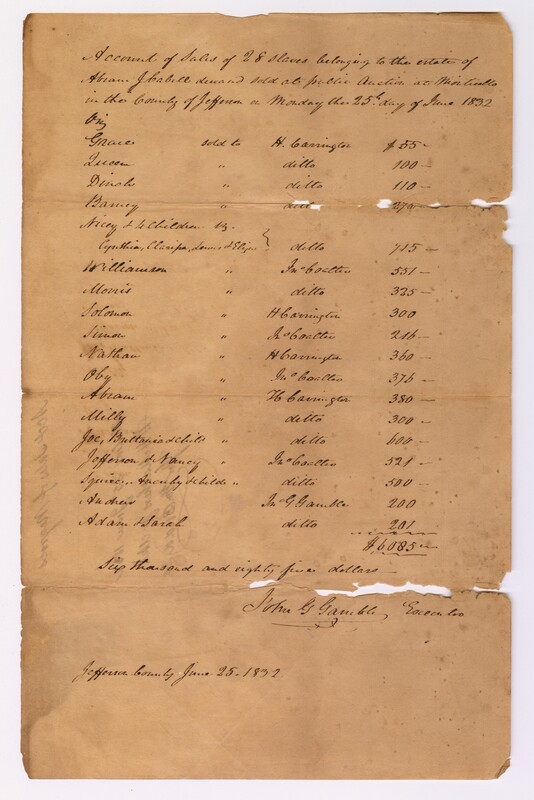 Account of Sales of 28 slaves belonging to the estate of
Abram J Cabell deceased sold at public Auction at Monticello
in the County of Jefferson on Monday the 25th day of June 1832
Viz
Grace sold to H. Carrington $55 —
Queen " ditto 100 —
Dinah " ditto 110 —
Barney " ditto 270 —
Nicey & 4 Children viz -
Cynthia, Clarissa, Lewis & Eliza } ditto 715 —
Williamson " Jno Coalter 551 —
Morris " ditto 325 —
Solomon " H Carrington 300
Simon " Jno Coalter 216 —
Nathan " H Carrington 360 —
Oby " Jno Coalter 376 —
Abram " H Carrington 380 —
Milly " ditto 300 —
Joe, Brittania & child " ditto 600 —
Jefferson & Nancy " Jno Coalter 521 —
Squire, & child " ditto 500 —
Andrew Jno G Gamble 200
Adam & Sarah ditto 201
$6085 —
Six thousand and eighty five dollars —
John G Gamble, Executor
Jefferson County June 25. 1832